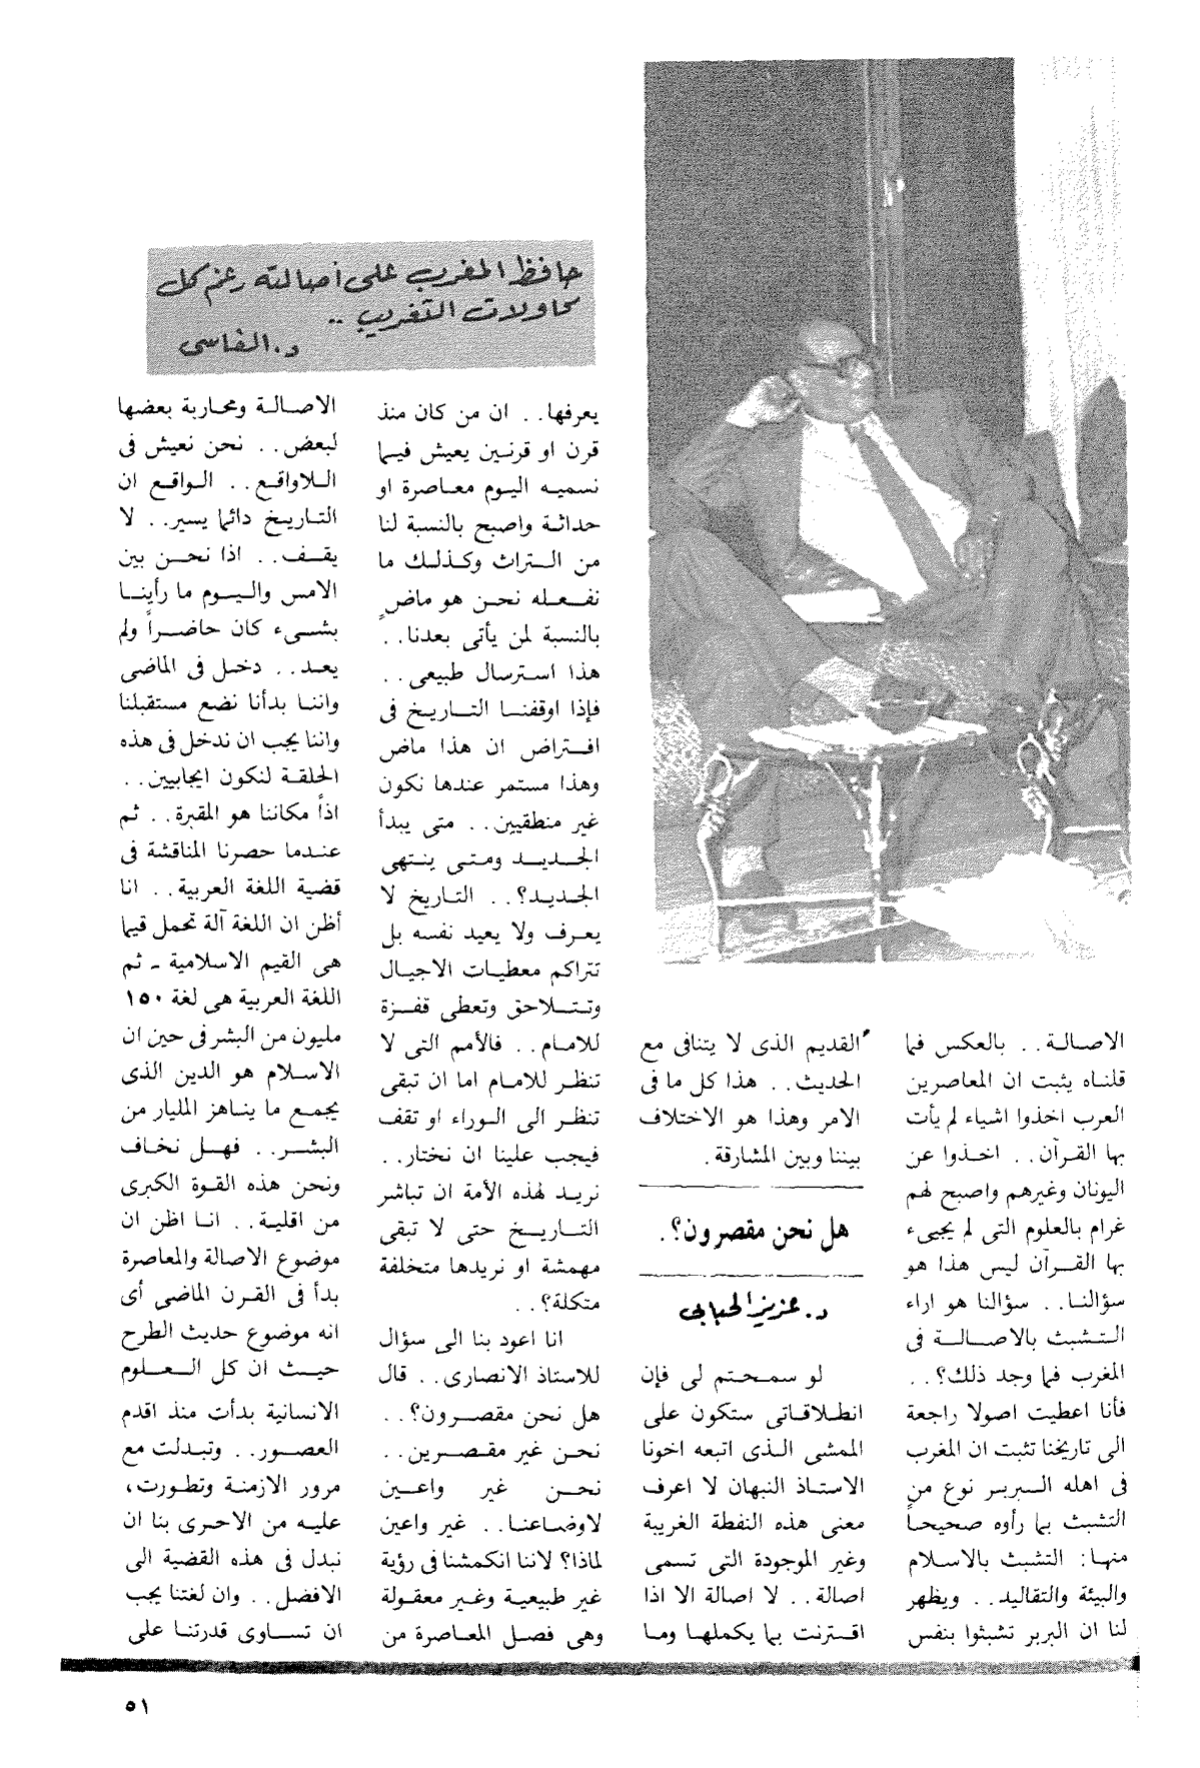 حافظ المغرب على أصالته رغم كل
محاولات التغريب ..
د. الفاسى
الاصالة . . بالعكس فما
قلناه يثبت ان المعاصرين
العرب اخذوا اشياء لم يأت
بها القرآن . . اخذوا عن
اليونان وغيرهم واصبح لهم
غرام بالعلوم التى لم يجيىء
بها القرآن ليس هذا هو
سؤالنا . . سؤالنا هو اراء
التشبث بالاصالة فى
المغرب فما وجد ذلك؟ . .
فأنا اعطيت اصولا راجعة
الى تاريخنا تثبت ان المغرب
فى اهله البربر نوع من
التشبث بما رأوه صحيحاً
منها: التشبث بالاسلام
والبيئة والتقاليد . . ويظهر
لنا ان البربر تشبثوا بنفس
القديم الذى لا يتنافى مع
الحديث . . هذا كل ما فى
الامر وهذا هو الاختلاف
بيننا وبين المشارقة .
هل نحن مقصرون؟ .
د. عزيز الحبابى
لو سمحتم لى فإن
انطلاقاتى ستكون على
الممشى الذى اتبعه اخونا
الاستاذ النبهان لا اعرف
معنى هذه النفطة الغريبة
وغير الموجودة التى تسمى
اصالة . . لا اصالة الا اذا
اقترنت بما يكملها وما
يعرفها . . ان من كان منذ
قرن او قرنين يعيش فيما
نسميه اليوم معاصرة او
حداثة واصبح بالنسبة لنا
من التراث وكذلك ما
نفعله نحن هو ماضٍ
بالنسبة لمن يأتى بعدنا . .
هذا استرسال طبيعى . .
فإذا اوقفنا التاريخ فى
افتراض ان هذا ماض
وهذا مستمر عندها نكون
غير منطقيين . . متى يبدأ
الجديد ومتى ينتهى
الجديد؟ . . التاريخ لا
يعرف ولا يعيد نفسه بل
تتراكم معطيات الاجيال
وتتلاحق وتعطى قفزة
للامام . . فالأمم التى لا
تنظر للامام اما ان تبقى
تنظر الى الوراء او تقف
فيجب علينا ان نختار . .
نريد لهذه الأمة ان تباشر
التاريخ حتى لا تبقى
مهمشة او نريدها متخلفة
متكلة؟ . .
انا اعود بنا الى سؤال
للاستاذ الانصارى . . قال
هل نحن مقصرون؟ . .
نحن غير مقصرين . .
نحن غير واعين
لاوضاعنا . . غير واعين
لماذا؟ لاننا انكمشنا فى رؤية
غير طبيعية وغير معقولة
وهى فصل المعاصرة من
الاصالة ومحاربة بعضها
لبعض . . نحن نعيش فى
اللاواقع . . الواقع ان
التاريخ دائما يسير . . لا
يقف . . اذا نحن بين
الامس واليوم ما رأينا
بشىء كان حاضراً ولم
يعد . . دخل فى الماضى
واننا بدأنا نضع مستقبلنا
واننا يجب ان ندخل فى هذه
الحلقة لنكون ايجابيين . .
اذاً مكاننا هو المقبرة . . ثم
عندما حصرنا المناقشة فى
قضية اللغة العربية . . انا
أظن ان اللغة آلة تحمل قيما
هى القيم الاسلامية ـ ثم
اللغة العربية هى لغة ١٥٠
مليون من البشر فى حين ان
الاسلام هو الدين الذى
يجمع ما يناهز المليار من
البشر . . فهل نخاف
ونحن هذه القوة الكبرى
من اقلية . . انا اظن ان
موضوع الاصالة والمعاصرة
بدأ فى القرن الماضى أى
انه موضوع حديث الطرح
حيث ان كل العلوم
الانسانية بدأت منذ اقدم
العصور . . وتبدلت مع
مرور الازمنة وتطورت،
عليه من الاحرى بنا ان
نبدل فى هذه القضية الى
الافضل . . وان لغتنا يجب
ان تساوى قدرتنا على
٥١